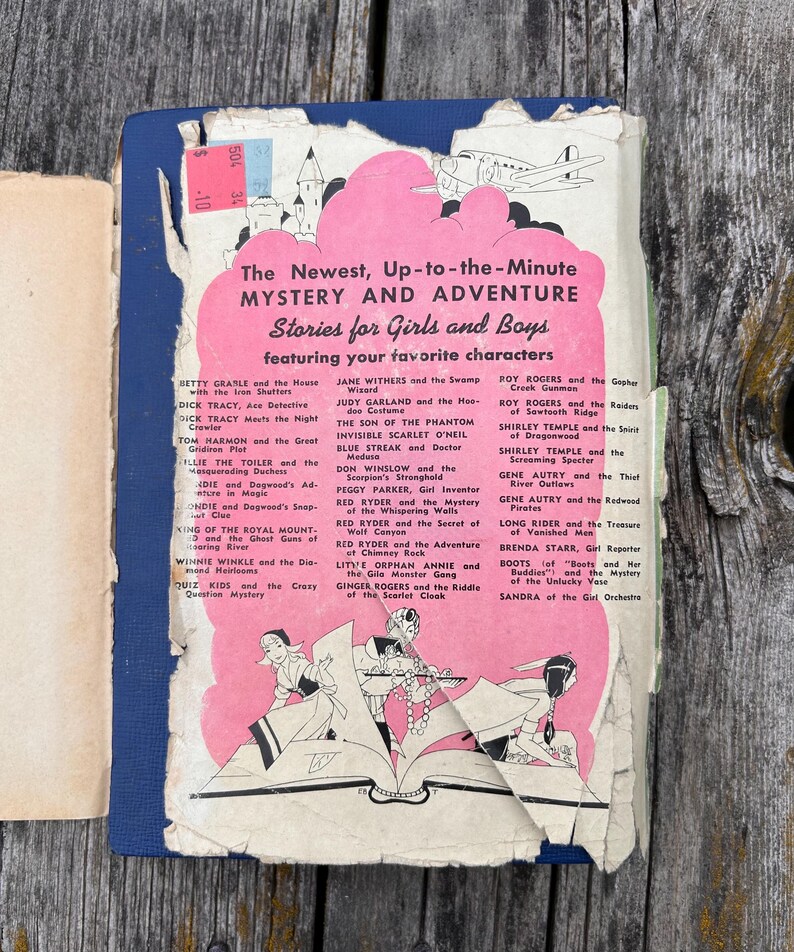 $ .10
504 34
The Newest, Up-to-the-Minute
MYSTERY AND ADVENTURE
Stories for Girls and Boys
featuring your favorite characters
BETTY GRABLE and the House
with the Iron Shutters
DICK TRACY, Ace Detective
DICK TRACY Meets the Night
Crawler
TOM HARMON and the Great
Gridiron Plot
TILLIE THE TOILER and the
Masquerading Duchess
NDIE and Dagwood's Ad-
enture in Magic
BLONDIE and Dagwood's Snap-
shot Clue
KING OF THE ROYAL MOUNT-
ED and the Ghost Guns of
Roaring River
WINNIE WINKLE and the Dia-
mond Heirlooms
QUIZ KIDS and the Crazy
Question Mystery
JANE WITHERS and the Swamp
Wizard
JUDY GARLAND and the Hoo-
doo Costume
THE SON OF THE PHANTOM
INVISIBLE SCARLET O'NEIL
BLUE STREAK and Doctor
Medusa
DON WINSLOW and the
Scorpion's Stronghold
PEGGY PARKER, Girl Inventor
RED RYDER and the Mystery
of the Whispering Walls
RED RYDER and the Secret of
Wolf Canyon
RED RYDER and the Adventure
at Chimney Rock
LITTLE ORPHAN ANNIE and
the Gila Monster Gang
GINGER ROGERS and the Riddle
of the Scarlet Cloak
ROY ROGERS and the Gopher
Creek Gunman
ROY ROGERS and the Raiders
of Sawtooth Ridge
SHIRLEY TEMPLE and the Spirit
of Dragonwood
SHIRLEY TEMPLE and the
Screaming Specter
GENE AUTRY and the Thief
River Outlaws
GENE AUTRY and the Redwood
Pirates
LONG RIDER and the Treasure
of Vanished Men
BRENDA STARR, Girl Reporter
BOOTS (of "Boots and Her
Buddies") and the Mystery
of the Unlucky Vase
SANDRA of the Girl Orchestra